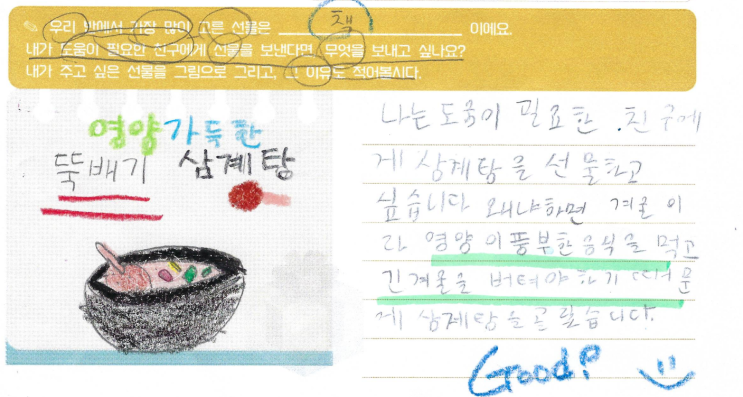 우리 반에서 가장 많이 고른 선물은 책 이에요.
내가 도움이 필요한 친구에게 선물을 보낸다면, 무엇을 보내고 싶나요?
내가 주고 싶은 선물을 그림으로 그리고, 그 이유도 적어봅시다.
영양가득한
뚝배기 삼계탕
나는 도움이 필요한 친구에
게 삼계탕을 선물하고
싶습니다 왜냐하면 겨울이
라 영양이 풍부한 음식을 먹고
긴겨울을 버텨야하기 때문
에 삼계탕을 골랐습니다.
Good!